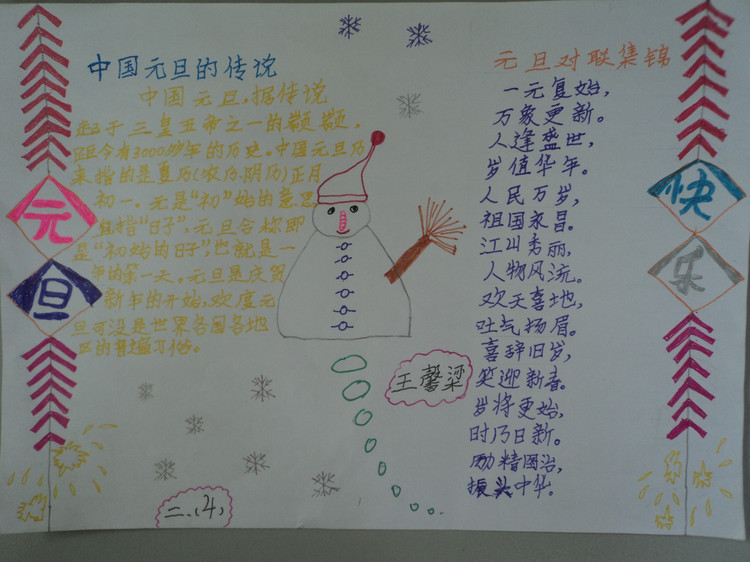 元
旦
中国元旦的传说
中国元旦,据传说
起于三皇五帝之一的颛顼,
距今有3000多年的历史。中国元旦历
来指的是夏历(农历、阴历)正月
初一。元是“初”始的意思
旦指“日子”,元旦合称即
是“初始的日子”,也就是一
年的第一天。元旦是庆贺
新年的开始,欢度元
旦可说是世界各国各地
区的普遍习俗。
王馨梁
二、(4)
元旦对联集锦
一元复始,
万象更新。
人逢盛世,
岁值华年。
人民万岁,
祖国永昌。
江山秀丽,
人物风流。
欢天喜地,
吐气扬眉。
喜辞旧岁,
笑迎新春。
岁将更始,
时乃日新。
励精图治,
振兴中华。
快
乐